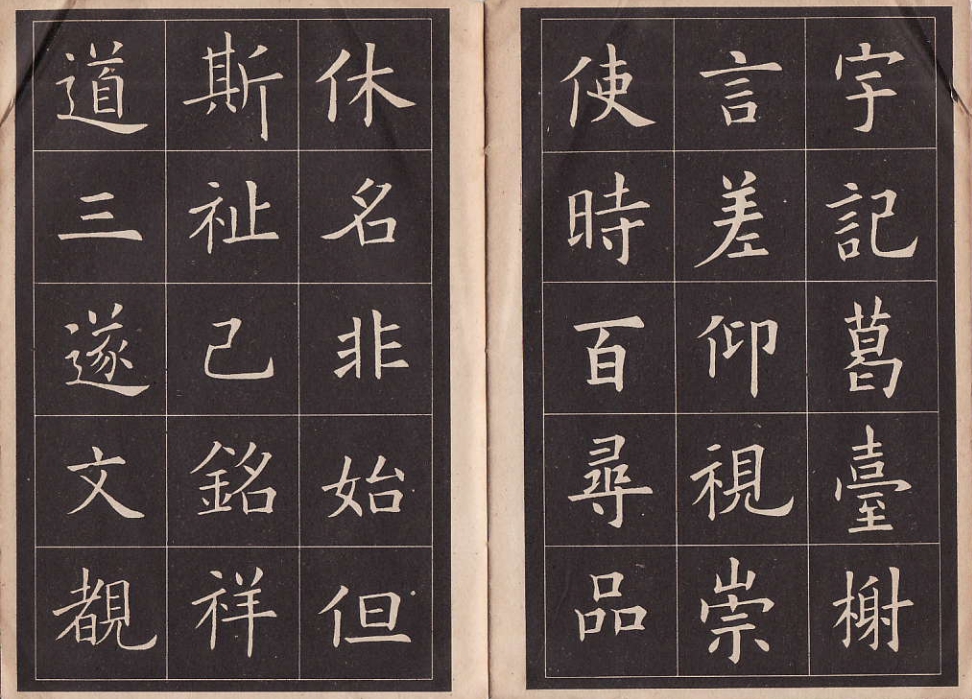 宇記葛臺榭
言差仰視崇
使時百尋品
休名非始但
斯祉己銘祥
道三遂文覩